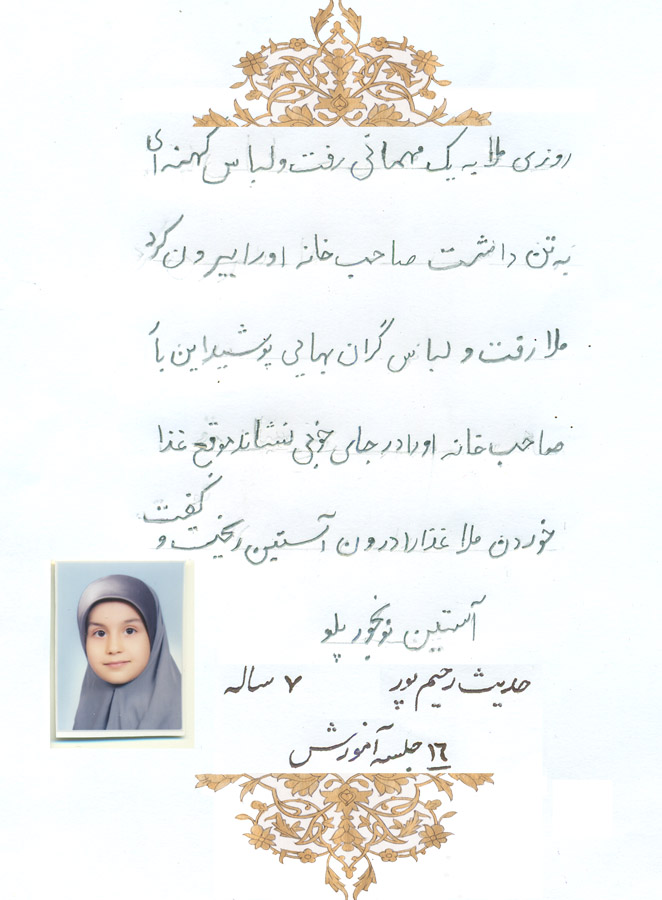 روزی ملا به یک مهمانی رفت و لباس کهنه ای
به تن داشت صاحب خانه او را بیرون کرد
ملا رفت و لباس گران بهایی پوشید این بار
صاحب خانه او را در جای خوبی نشاند موقع غذا
خوردن ملا غذا را درون آستین ریخت و گفت
آستین نو بخور پلو
حدیث رحیم پور ۷ ساله
۱۶ جلسه آموزش